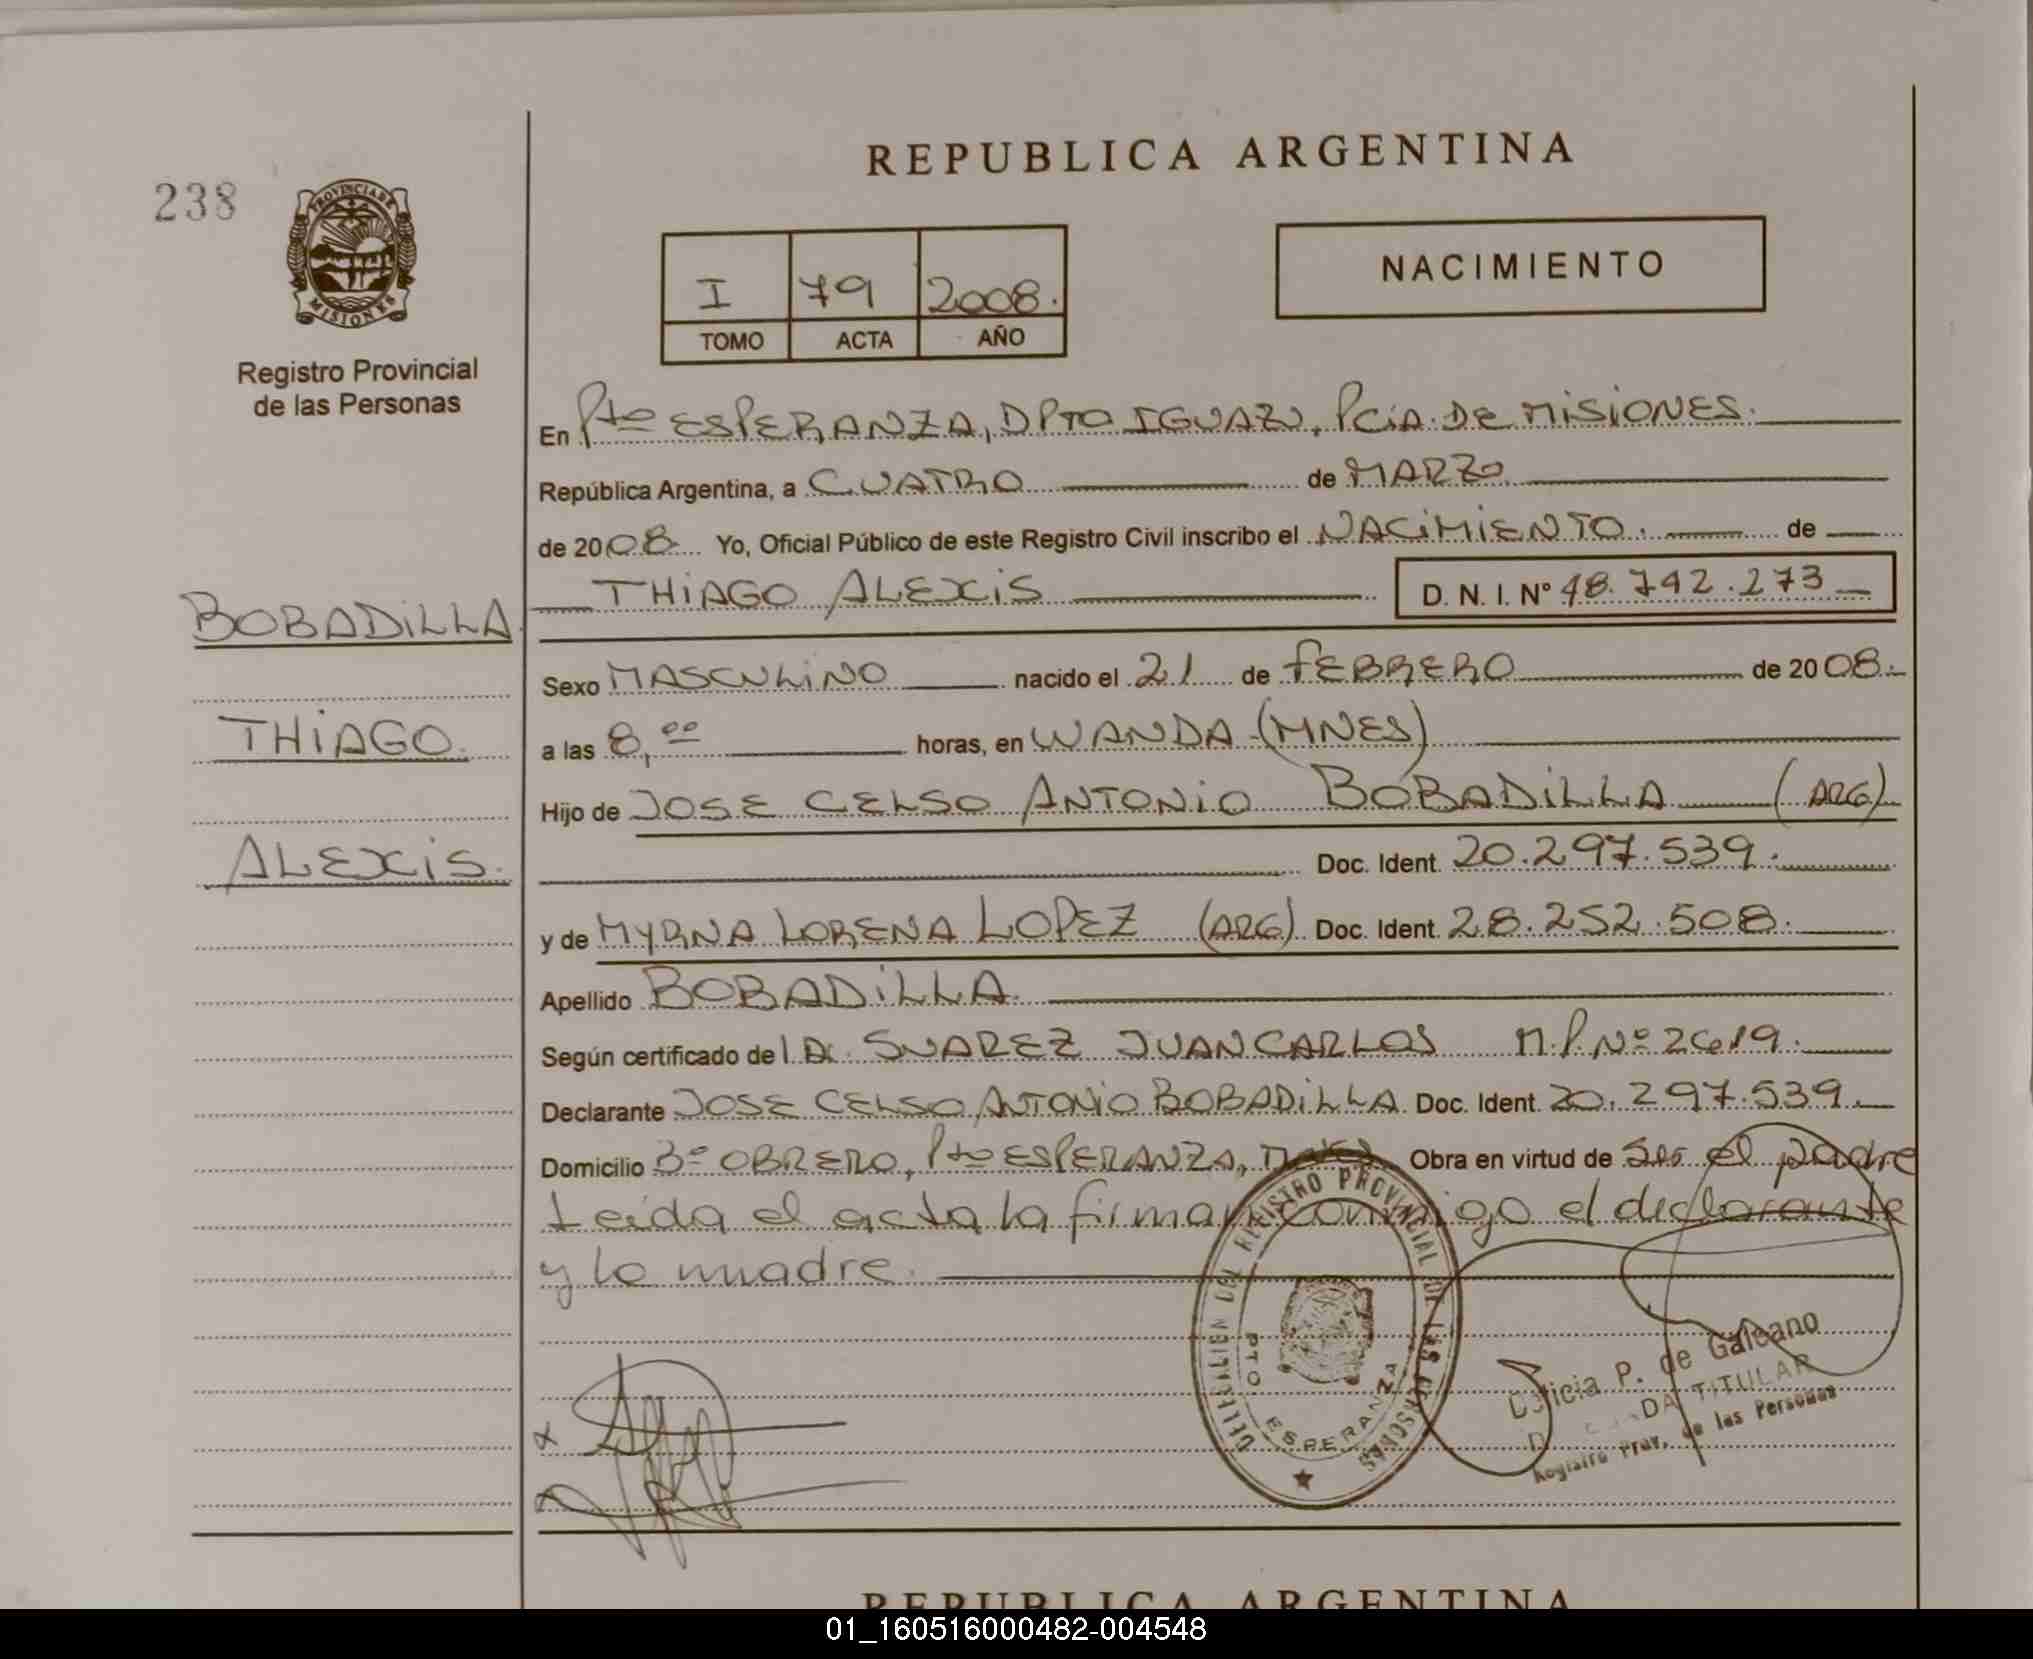 REPUBLICA ARGENTINA
238
PROVINCIA DE
MISIONES
Registro Provincial
de las Personas
NACIMIENTO
I 79 2008.
TOMO ACTA AÑO
En Pto ESPERANZA, DPTO IGUAZU, PCiA. DE MISIONES.
República Argentina, a CUATRO de MARZO
de 2008 Yo, Oficial Público de este Registro Civil inscribo el NACiMiENTO. de
THiAGO ALEXiS D. N. I. Nº 48.742.273
BOBADiLLA
THiAGO.
ALEXiS.
Sexo MASCULiNO nacido el 21 de FEBRERO de 2008.
a las 8,00 horas, en WANDA (MNES)
Hijo de JOSE CELSO ANTONiO BOBADiLLA (ARG)
Doc. Ident. 20.297.539.
y de MYRNA LORENA LOPEZ (ARG) Doc. Ident. 28.252.508.
Apellido BOBADiLLA.
Según certificado del Dr. SUAREZ JUAN CARLOS M.P. Nº 2619.
Declarante JOSE CELSO ANTONiO BOBADiLLA. Doc. Ident. 20.297.539.
Domicilio Bº OBRERO, Pto ESPERANZA, Obra en virtud de ser el padre
Leida el acta la firman conmigo el declarante
y la madre.
DELEGACION DEL REGISTRO PROVINCIAL DE LAS PERSONAS
PTO. ESPERANZA
P. de Galeano
TITULAR
Registro Prov. de las Personas
REPUBLICA ARGENTINA
01_160516000482-004548